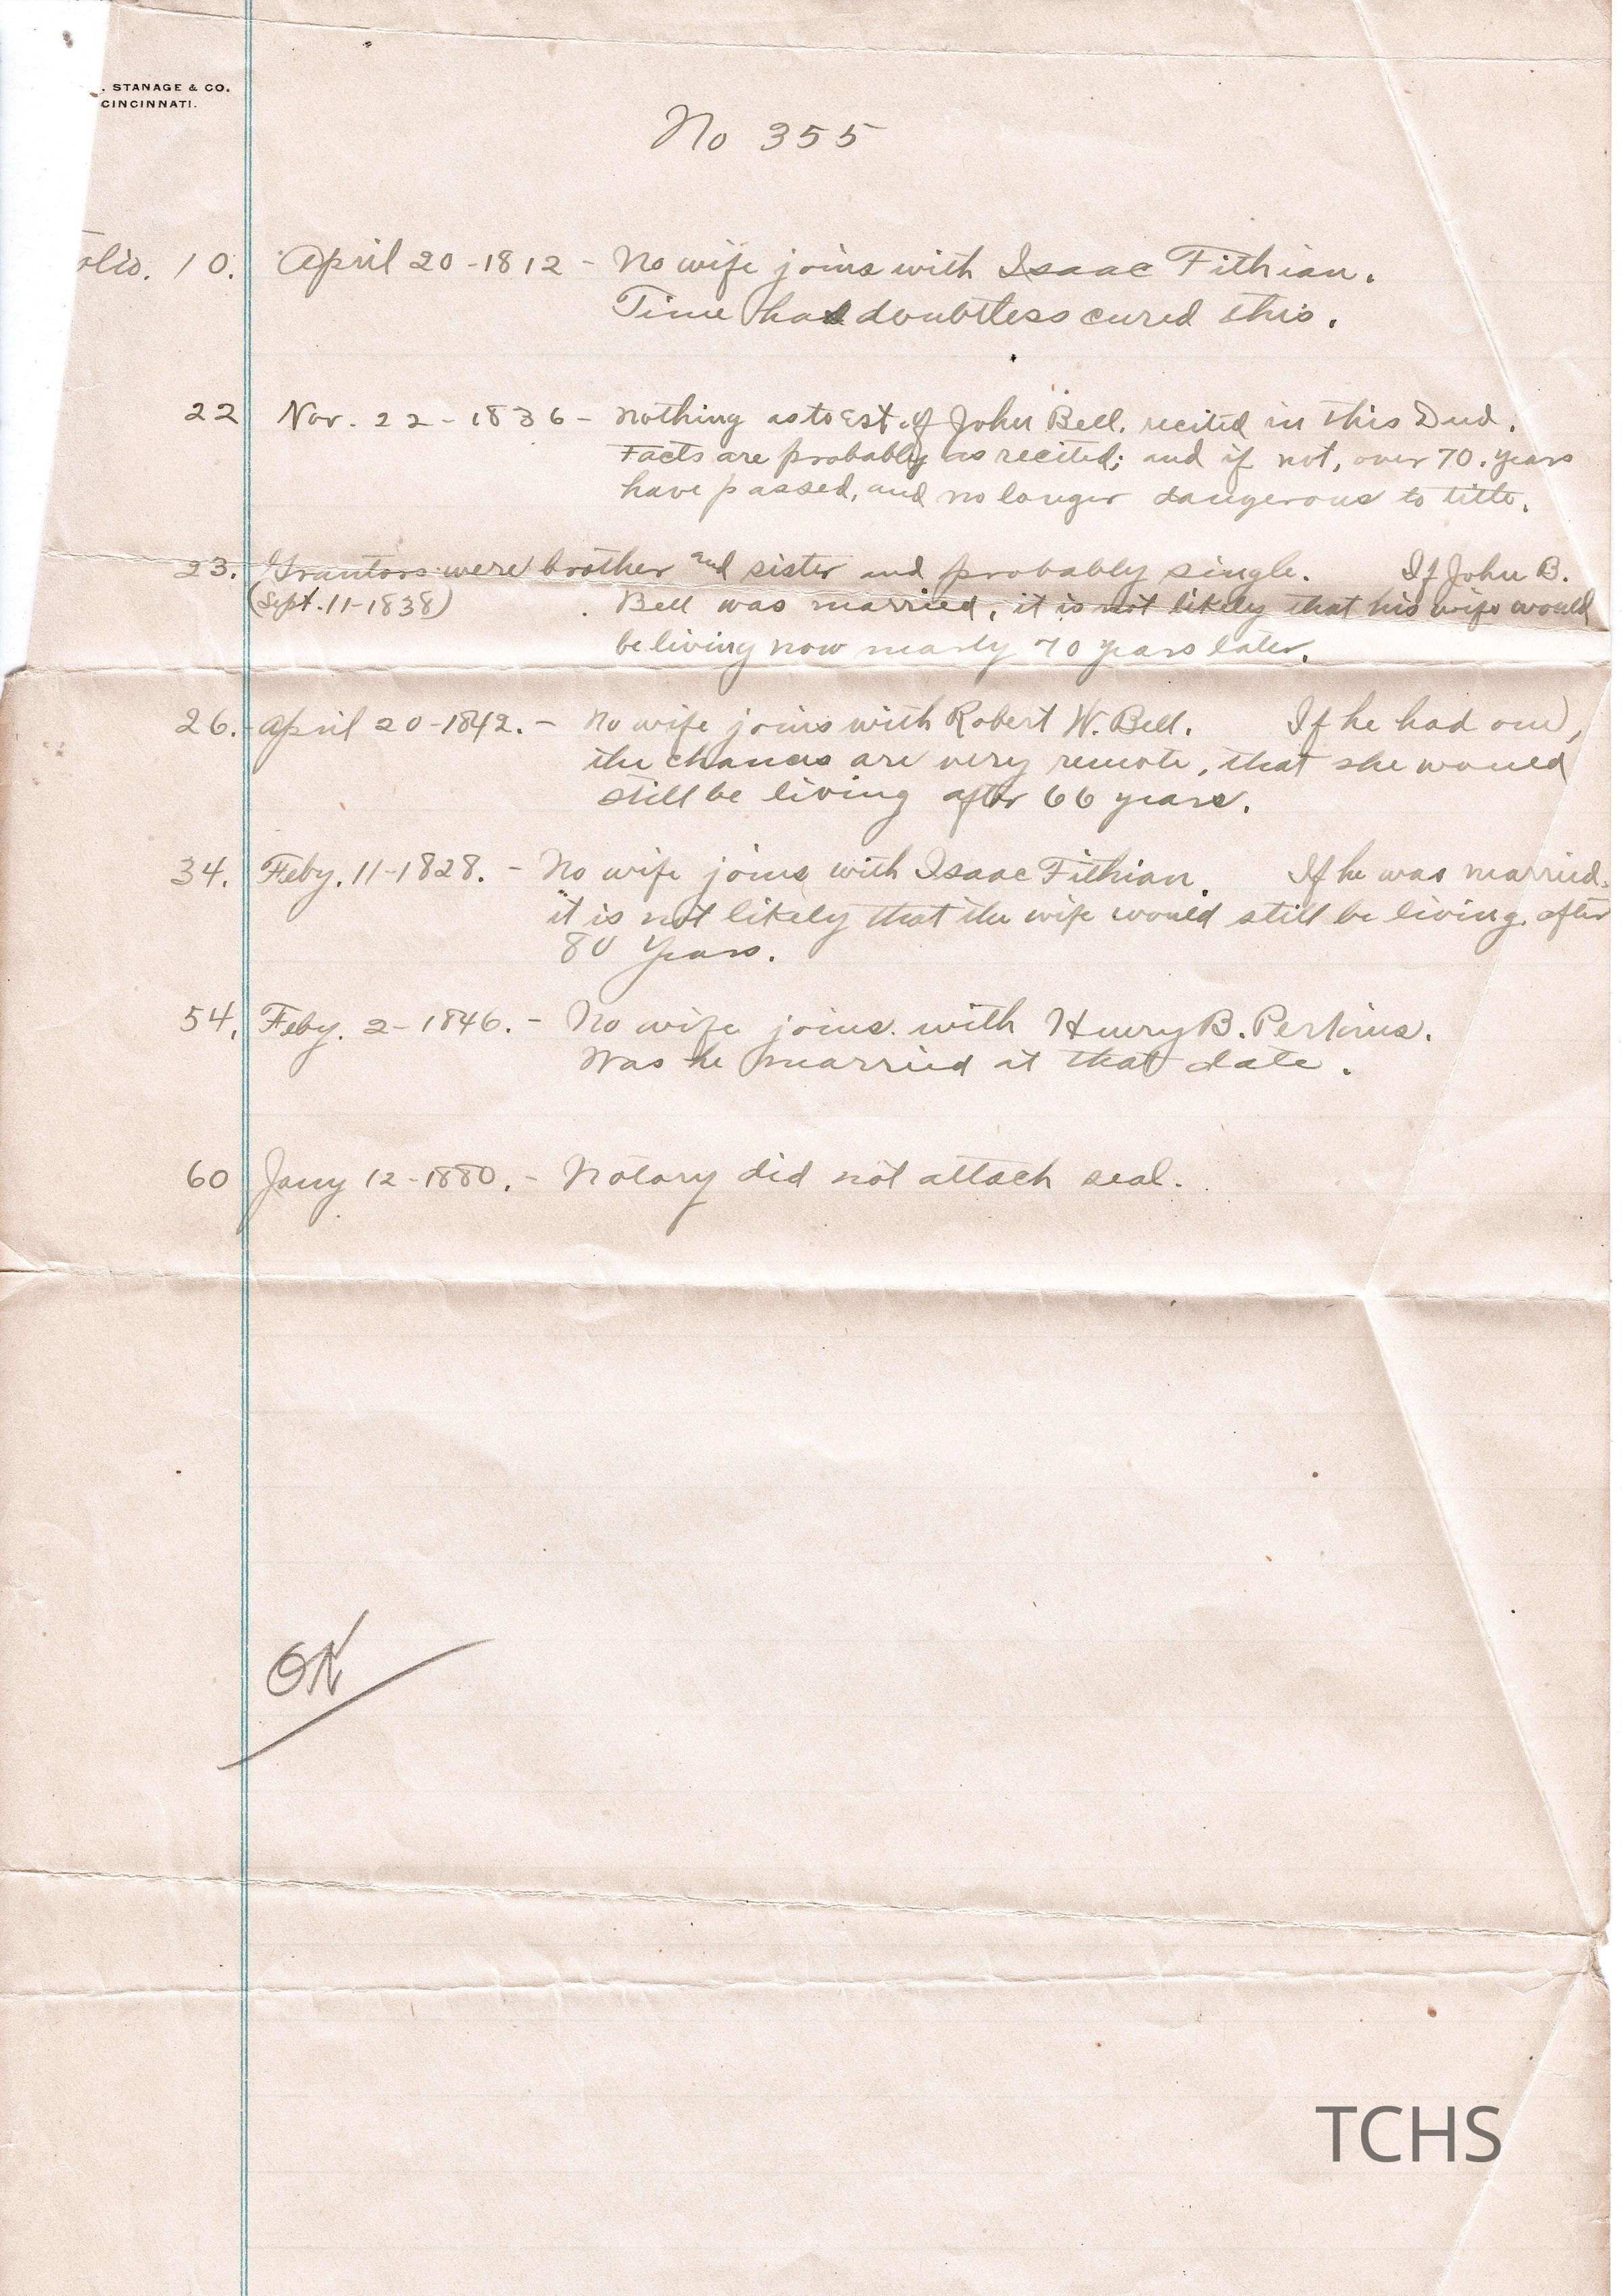 . STANAGE & CO.
CINCINNATI.
No 355
olio. 10. April 20-1812 - No wife joins with Isaac Fithian.
Time has doubtless cured this.
22 Nov. 22-1836 - nothing as to Est. of John Bell, recited in this Deed.
Facts are probably as recited; and if not, over 70 years
have passed, and no longer dangerous to title.
23. Grantors were brother and sister and probably single. If John B.
(Sept. 11-1838) Bell was married, it is not likely that his wife would
be living now nearly 70 years later.
26. April 20-1842. - No wife joins with Robert W. Bell. If he had one,
the chances are very remote, that she would
still be living after 66 years.
34. Feby. 11-1828. - No wife joins with Isaac Fithian. If he was married,
it is not likely that the wife would still be living, after
80 years.
54. Feby. 2-1846. - No wife joins with Henry B. Perkins.
Was he married at that date.
60 Jany 12-1880. - Notary did not attach seal.
OK
TCHS